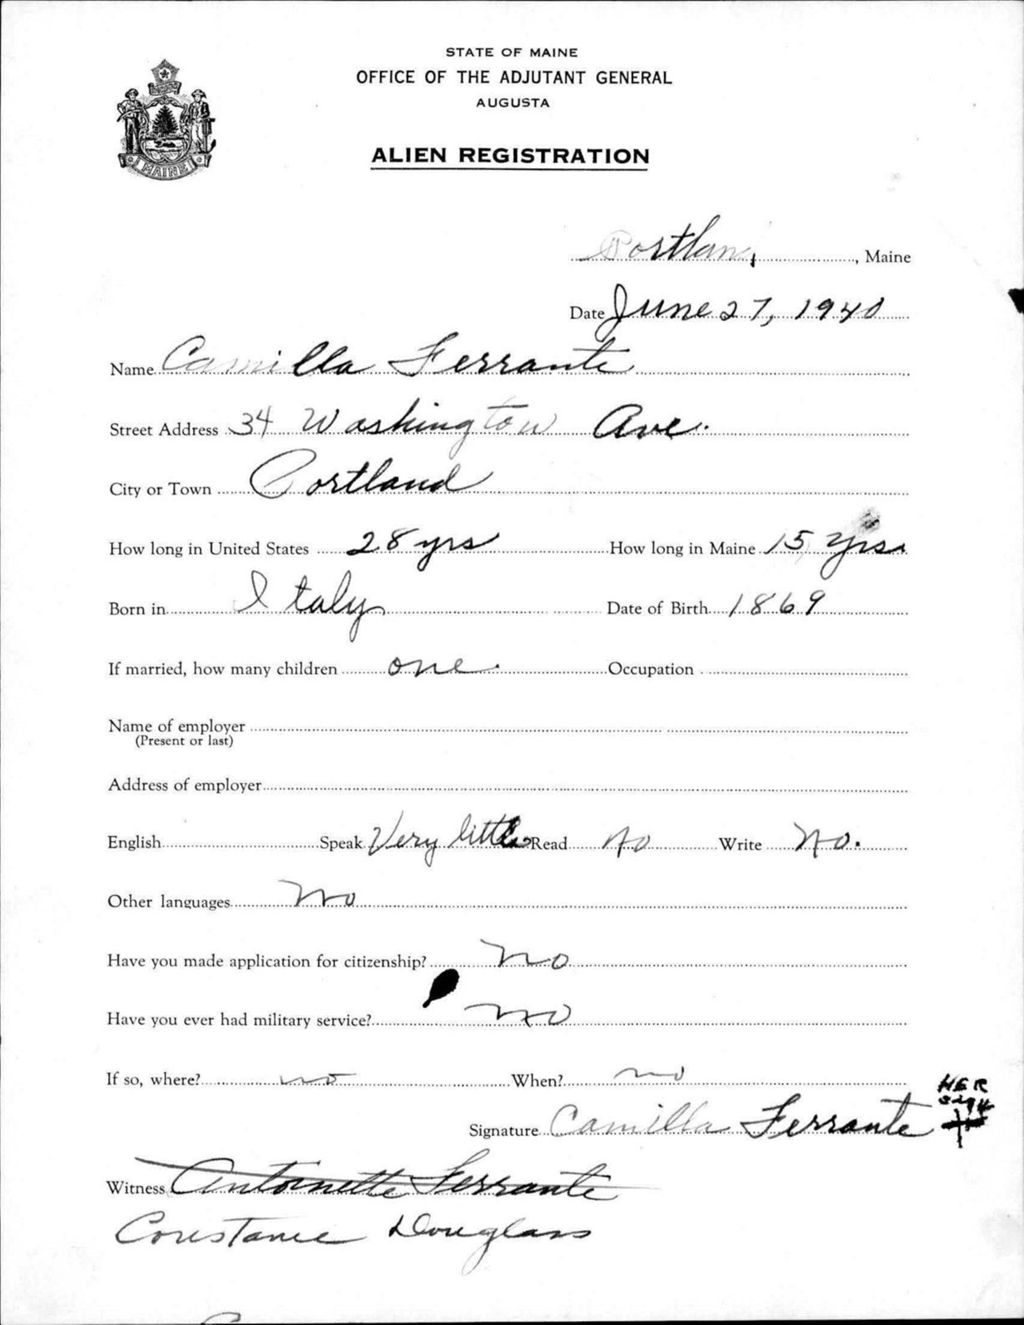 STATE OF MAINE
OFFICE OF THE ADJUTANT GENERAL
AUGUSTA
ALIEN REGISTRATION
MAINE
Portland, Maine
Date June 27, 1940
Name Camilla Ferrante
Street Address 34 Washington Ave.
City or Town Portland
How long in United States 28 yrs How long in Maine 15 yrs.
Born in Italy Date of Birth 1869
If married, how many children one. Occupation
Name of employer
(Present or last)
Address of employer
English Speak Very little Read No Write No.
Other languages No
Have you made application for citizenship? No
Have you ever had military service? No
If so, where? no When? no
HER
sign
Signature Camilla Ferrante +
Witness Antoinette Ferrante
Constance Douglass